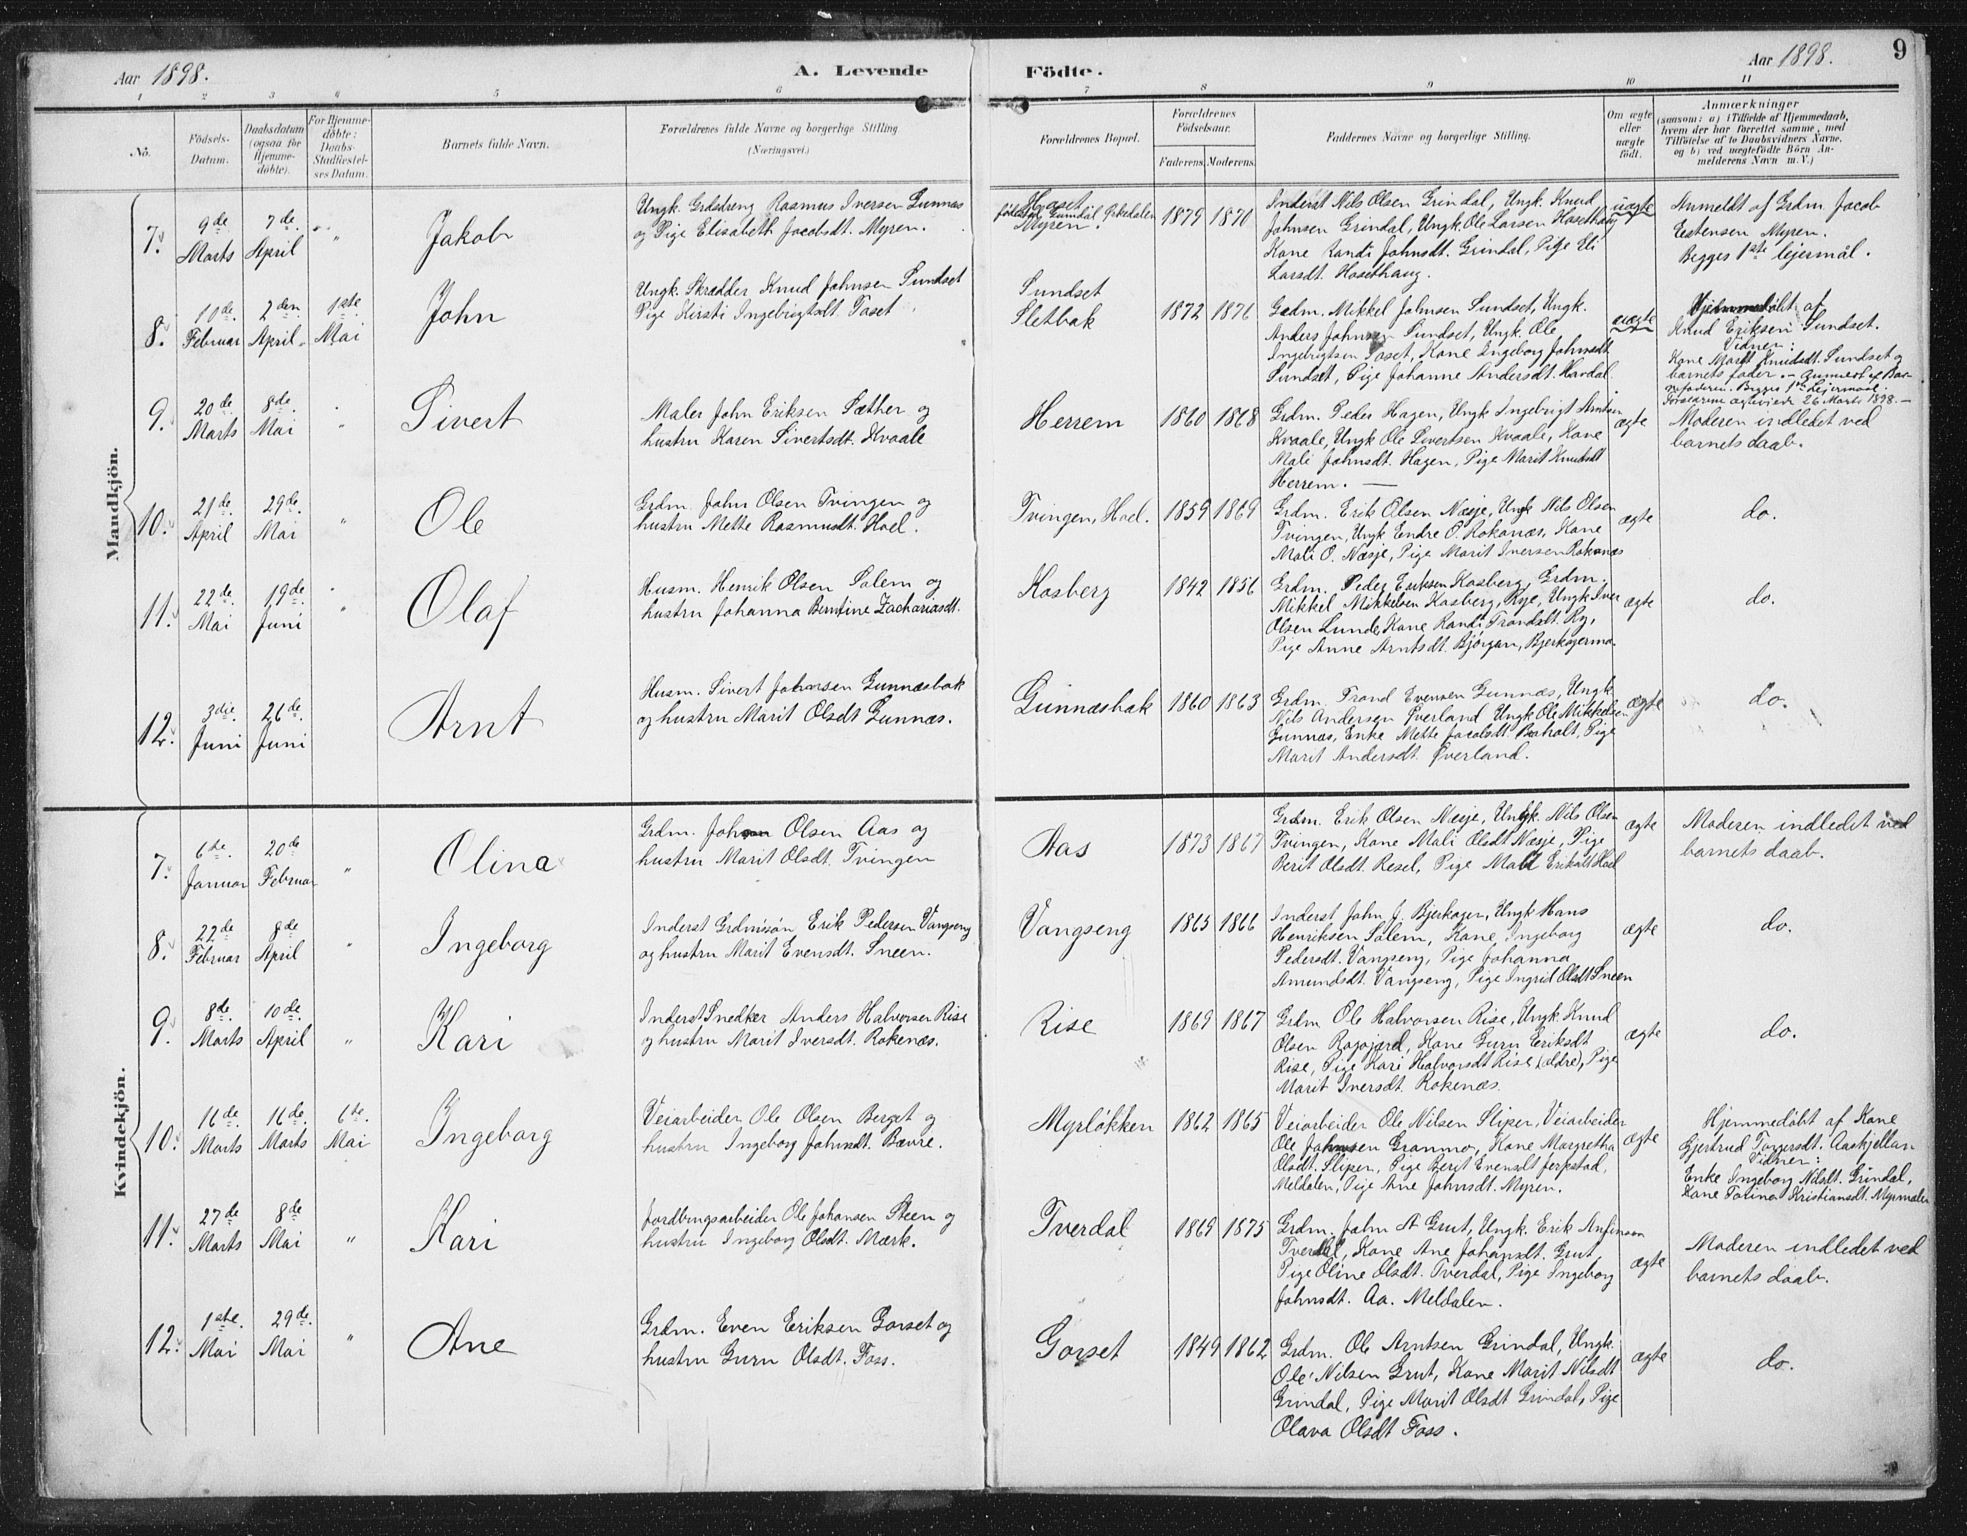 Aar 1898.
A. Levende
Födte.
Aar 1898.
9
1 2 3 4 5 6 7 8 9 10 11
No.
Födsels-
Datum.
Daabsdatum
(ogsaa for
Hjemme-
døbte).
For Hjemme-
døbte:
Daabs-
Stadfæstel-
ses Datum.
Barnets fulde Navn.
Forældrenes fulde Navne og borgerlige Stilling
(Næringsvei.)
Forældrenes Bopæl.
Forældrenes
Födselsaar.
Faderens. Moderens.
Faddernes Navne og borgerlige Stilling.
Om ægte
eller
uægte
født.
Anmærkninger
(saasom: a) i Tilfælde af Hjemmedaab,
hvem der har forrettet samme, med
Tilføielse af to Daabsvidners Navne,
og b) ved uægtefødte Börn An-
melderens Navn m. V.)
Mandkjön.
7.
9de
Marts
7de.
April
"
Jakob
Ungk. Grdsdreng Rasmus Iversen Gunnæs
og Pige Elisabeth Jacobsdt. Myren.
Myren.
1879 1870
Inderst Nils Olsen Grindal, Ungk. Knud
Johnsen Grindal, Ungk. Ole Larsen Hosethaug
Kone Randi Johnsdt. Grindal, Pige Eli
Larsdt. Hosethaug.
uægte
Anmeldt af Grdm. Jacob
Estensen Myren.
Begges 1ste lejermål.
8.
10de.
Februar
2den
April.
1ste
Mai
John
Ungk. Skrædder Knud Johnsen Sundset
Pige Kirsti Ingebrigtsdt. Foset
Sundset
Sletbak
1872 1876
Grdm. Mikkel Johnsen Sundset, Ungk.
Anders Johnsen Sundset, Ungk. Ole
Ingebrigtsen Foset, Kone Ingeborg Johnsdt.
Sundset, Pige Johanne Andersdt. Havdal.
uægte
Hjemmedöbt af
Knud Eriksen Sundset.
Vidner:
Kone Marit Knudsdt. Sundset og
barnets fader. - Anmeldt af Bar-
nefaderen. Begges 1ste Lejermaal.
Forældrene ægteviede 26 Marts 1898. -
9.
20de
Marts
8de.
Mai
"
Sivert
Maler John Eriksen Sæther og
hustru Karen Sivertsdt. Kvaale
Herrem
1860 1868
Grdm. Peder Hagen, Ungk Ingebrigt Arntsen
Kvaale, Ungk Ole Sivertsen Kvaale, Kone
Mali Johnsdt. Hagen, Pige Marit Knudsdt
Herrem. —
ægte
Moderen indledet ved
barnets daab.
10.
21de
April
29de.
Mai
"
Ole
Grdm. John Olsen Tvingen og
hustru Mette Rasmusdt. Hoel.
Tvingen, Hoel.
1859 1869
Grdm. Erik Olsen Næsje, Ungk Nils Olsen
Tvingen, Ungk Endre O. Rokenæs, Kone
Mali O. Næsje, Pige Marit Iversen Rokenæs
ægte
do.
11.
22de.
Mai
19de.
Juni
"
Olaf
Husm. Henrik Olsen Solem og
hustru Johanna Berntine Zachariasdt.
Kosberg
1842 1856
Grdm. Peder Eriksen Kosberg, Grdm.
Mikkel Mikkelsen Kosberg, Rye, Ungk Iver
Olsen Lunde, Kone Randi Trondsdt. Ry,
Pige Anne Arntsdt. Björgan, Bjerkagermo.
ægte
do.
12.
3die.
Juni
26de.
Juni
Arnt
Husm. Sivert Johnsen Gunnæsbak
og hustru Marit Olsdt Gunnæs.
Gunnæsbak
1860 1863
Grdm. Trond Evensen Gunnæs, Ungk.
Nils Andersen Øverland Ungk Ole Mikkelsen
Gunnæs, Enke Mette Jacobsdt. Boholt, Pige
Marit Andersdt. Øverland.
ægte
do.
Kvindekjön.
7.
6te.
Januar
20de
Februar
"
Olina
Grdm. Johan Olsen Aas og
hustru Marit Olsdt. Tvingen
Aas
1873 1867
Grdm. Erik Olsen Næsje, Ungk. Nils Olsen
Tvingen, Kone Mali Olsdt Næsje, Pige
Berit Olsdt. Resel, Pige Malit Eriksdt Hoel
ægte
Moderen indledet ved
barnets daab.
8.
22de
Februar
8de
April
"
Ingeborg
Inderst Grdmssøn Erik Pedersen Vangseng
og hustru Marit Evensdt. Sneen.
Vangseng
1865 1866
Inderst John J. Bjerkagen, Ungk Hans
Henriksen Solem, Kone, Ingeborg
Pedersdt. Vangseng, Pige Johanna
Amundsdt. Vangseng, Pige Ingrid Olsdt Sneen
ægte
do.
9.
8de.
Marts
10de.
April
"
Kari
Inderst Snedker Anders Halvorsen Rise
og hustru Marit Iversdt. Rokenæs.
Rise
1869 1867
Grdm Ole Halvorsen Rise, Ungk Knud
Olsen Rogogjerd, Kone Guru Eriksdt
Rise, Pige Kari Halvorsdt Rise (ældre), Pige
Marit Iversdt. Rokenæs.
ægte
do.
10.
16de
Marts
16de.
Marts
6te.
Mai
Ingeborg
Veiarbeider Ole Olsen Berget og
hustru Ingeborg Johnsdt. Bævre.
Myrløkken
1862 1865
Veiarbeider Ole Nilsen Sliper, Veiarbeider
Ole Johnsen Granmo, Kone Margretha
Olsdt. Slipen, Pige Berit Evensdt Jerpstad,
Meldalen, Pige Ane Johnsdt. Myren.
ægte
Hjemmedöbt af Kone
Gjertrud Torgersdt. Aaskjellan
Vidner:
Enke Ingeborg Nilsdt. Grindal,
Kone Torina Kristiansdt. Myrmalen
11.
27de
Marts
8de
Mai
"
Kari
Jordbrugsarbeider Ole Johansen Steen og
hustru Ingeborg Olsdt. Mærk.
Tverdal
1869 1875
Grdm, John A Grut, Ungk. Erik Anfinsen
Tverdal, Kone Ane Johansdt. Grut,
Pige Oline Olsdt. Tverdal, Pige Ingeborg
Johnsdt. Aa. Meldalen.
ægte
Moderen indledet ved
barnets daab.
12.
1ste.
Mai
29de.
Mai
"
Ane
Grdm. Even Eriksen Gorset og
hustru Guru Olsdt. Foss.
Gorset
1849 1862
Grdm. Ole Arntsen Grindal, Ungk.
Ole Nilsen Grut, Kone Marit Nilsdt
Grindal, Pige Marit Olsdt Grindal, Pige
Olava Olsdt Foss.
ægte
do.